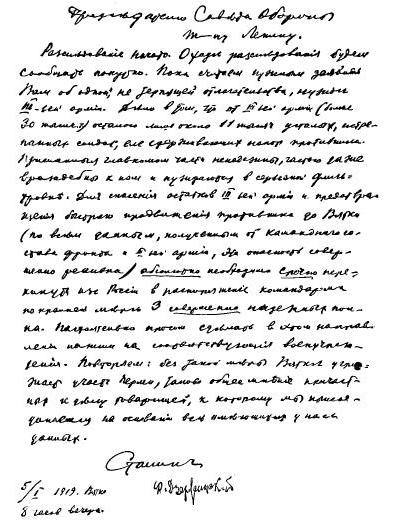 Председателю Совета Обороны
т-щу Ленину.
Расследование начато. О ходе расследования будем
сообщать попутно. Пока считаем нужным заявить
Вам об одной, не терпящей отлагательства, нужде
III-ей армии. Дело в том, что от III-ей армии (более
30 тысяч) осталось лишь около 11 тысяч усталых, истре-
панных солдат, еле сдерживающих напор противника.
Присланные главкомом части ненадежны, частью даже
враждебны к нам и нуждаются в серьезной филь-
тровке. Для спасения остатков III-ей армии и предотвра-
щения быстрого продвижения противника до Вятки
(по всем данным, полученным от командного со-
става фронта и III-ей армии, эта опасность совер-
шенно реальна) абсолютно необходимо срочно пере-
кинуть из России в распоряжение командарма
по крайней мере 3 совершенно надежных пол-
ка. Настоятельно просим сделать в этом направ-
лении нажим на соответствующие военучреж-
дения. Повторяем: без такой меры Вятке угро-
жает участь Перми, таково общее мнение причаст-
ных к делу товарищей, к которому мы присое-
диняемся на основании всех имеющихся у нас
данных.
Сталин
5/I 1919. Вятка Ф. Дзержинский
8 часов вечера.